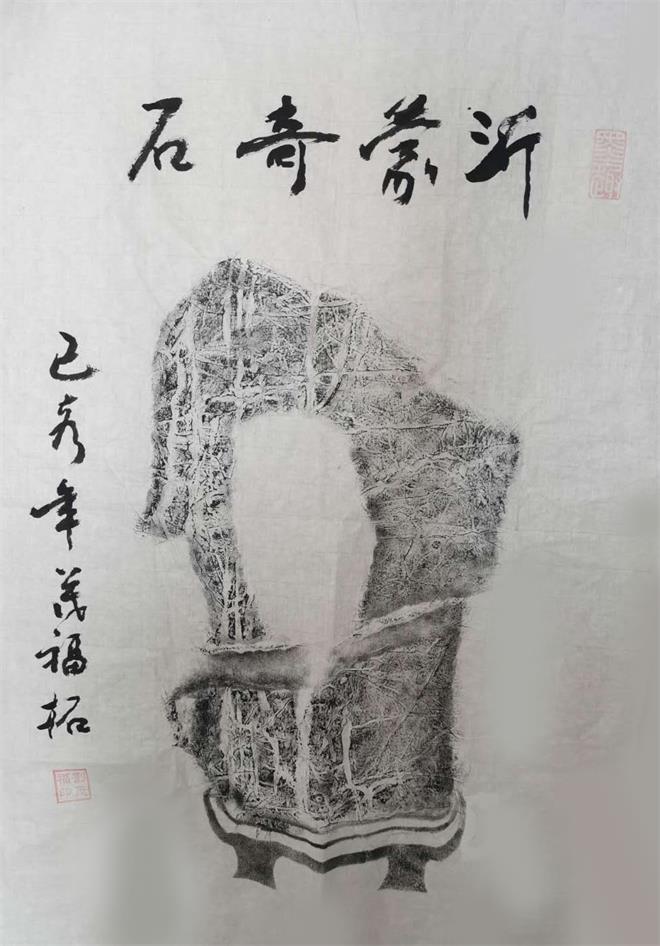 沂蒙奇石
己亥年茂福拓